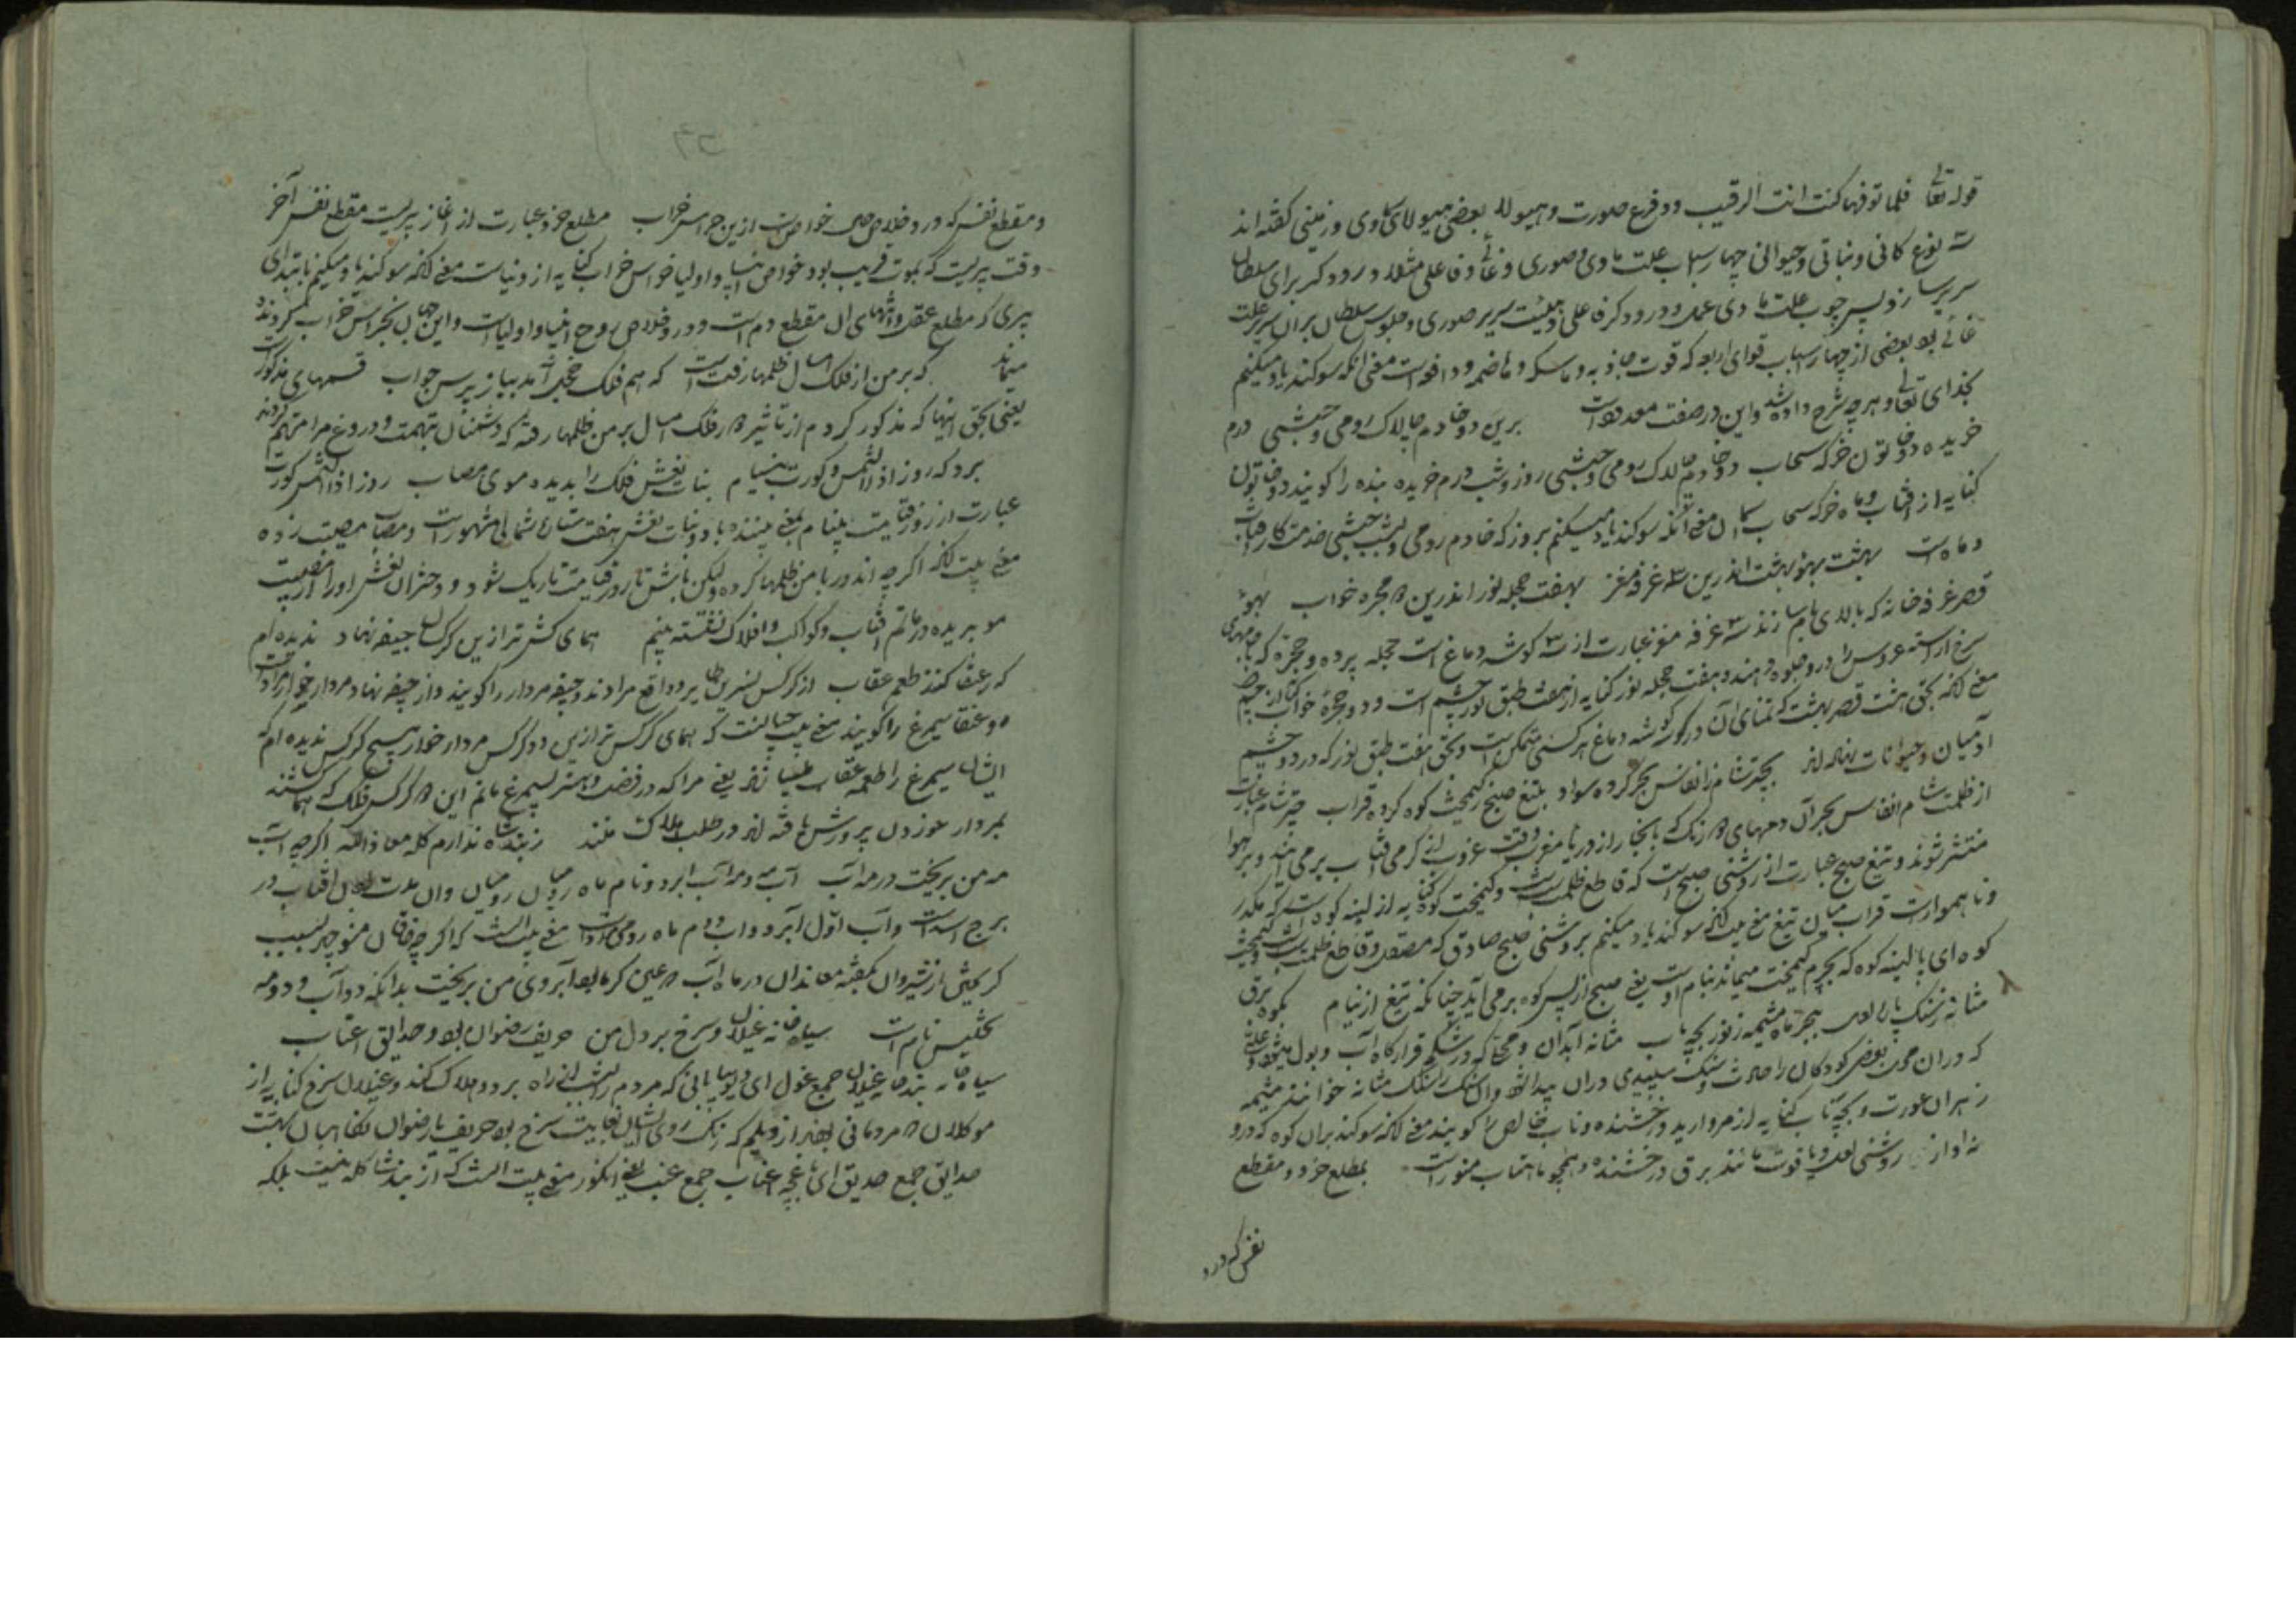 قوله تعالی فلما توفها کنت انت الرقیب دو فرع صورت و هیولا بعضی هیولای سماوی و زمینی گفته اند
سه نوع کانی و نباتی و حیوانی چهار اسباب علت مادی و صوری و غائی و فاعلی مثلا درودگر برای سلطان
سریر سازد پس چوب علت مادی و درودگر فاعلی و هیئت سریر صوری و جلوس سلطان بران سریر علت
غائی بود بعضی از چهار اسباب قوای اربعه که قوت جاذبه و ماسکه و هاضمه و دافعه است معنی آنکه سوگند یاد میکنم
بخدای تعالی و هر چه شرح داده شد و این در صفت معدودات برین دو خادم چالاک رومی و حبشی درم
خریده دو خاتون خرگه سحاب دو خادم چالاک رومی و حبشی روز و شب درم خریده بنده را گویند دو خاتون
کنایه از آفتاب و ماه خرگه سحاب آسمان معنی آنکه سوگند یاد میکنم بروز که خادم رومی و بشب حبشی خدمتکار آفتاب
و ماه است بهشت بهو بهشت اندرین سه غرفه مغز بهفت حجله نور اندرین دو حجره خواب بهو
قصر غرفه خانه که بالای بام سازند سه غرفه مغز عبارت از سه گوشه دماغ است حجله پرده و حجره که
سرخ آراسته عروس را درو جلوه دهند و هفت حجله نور کنایه از هفت طبق نور چشم است و دو حجره خواب کنایه از چشم
معنی آنکه بحق هشت قصر بهشت که تمنای آن در گوشه دماغ هر کسی متمکن است و بحق هفت طبق نور که در دو چشم
آدمیان و حیوانات نهاده اند بچتر شام ز انفاس بحر کرده سواد بتیغ صبح ز کیمخت کوه کرده قراب چتر شام عبارت
از ظلمت شام انفاس بحر آن دمهای که بخار از دریا مغرب وقت غروب از گرمی آفتاب برمی آید و بر هوا
منتشر شوند و تیغ صبح عبارت از روشنی صبح است که قاطع ظلمت است و کیمخت کوه کنایه از پشته کوه است که مکدر
و ناهموار است قراب میان تیغ معنی بیت آنکه سوگند یاد میکنم بروشنی صبح صادق که مصقل و قاطع ظلمت است
کوه ای پشته کوه که بچرم کیمخت میماند نیام اوست یعنی صبح از پس کوه برمی آید چنانکه تیغ از نیام بکوه برق
مثانه ز سنگ بچتر ماه مشیمه ز نور بچه ناب مثانه آبدان و محجا که در شکم قرارگاه آب و بول است
که دران چون بعضی کودکان را حادث سنگ سپیدی دران پیدا شود وآن سنگ را سنگ مثانه خوانند مشیمه
زهدان عورت و بچه ناب کنایه از مروارید درخشنده و ناب خالص را گویند معنی آنکه سوگند بران کوه که درو
نه او از روشنی لعل و یاقوت مانند برق درخشنده و همچو ماهتاب منور است بمطلع خرد و مقطع
نفس که درو
و مقطع نفس که درو خلاص خواص است ازین حراس خراب مطلع خرد عبارت از آغاز پیریست مقطع نفس آخر
وقت پیریست که بموت قریب بود خواص انبیا و اولیا حراس خراب کنایه از دنیاست معنی آنکه سوگند یاد میکنم بابتدای
پیری که مطلع عقل و انتهای آن مقطع دم است و درو خلاص روح انبیا و اولیاست و این جهان بحراس خراب کردند
میماند که بر من از فلک امسال ظلمها رفتست که هم فلک خجل آمد بباز پرس جواب قسمهای مذکور
یعنی بحق اینها که مذکور کردم از تاثیر فلک امسال بر من ظلمها رفته که دشمنان بتهمت و دروغ مرا متهم کردند
برد که روز اذالشمس کورت بینیام بنات نعش فلک را بدیده موی مصاب روز اذالشمس کورت
عبارت از روز قیامت بینام بمعنی بیننده باد و بنات نعش هفت ستاره شمالی مشهور است و مصاب مصیبت زده
معنی بیت آنکه اگر چه اندور با من ظلمها کرده و لیکن باش تا روز قیامت تاریک شود و دختران نعش او را از مصیبت
مو بریده در ماتم آفتاب و کواکب و افلاک نشسته بینم همای کش تر ازین کرگسان جیفه نهاد ندیده ام
که ز عنقا کنند طعمه عقاب از کرگس نسرین طایر و واقع مرادند و جیفه مردار را گویند و از جیفه نهاد مردار خوار مراد
و عنقا سیمرغ را گویند معنی بیت آنست که همای کرگس تر ازین دو کرگس مردار خوار هیچ کرگس ندیده ام که
ایشان سیمرغ را طعمه عقاب میسازند یعنی مرا که در فضل و هنر بسیمرغ مانم این کرگس فلک که
بمردار خوردن پرورش یافته اند در طلب هلاک منند ز بند شاه ندارم گله معاذ الله اگر چه آب
مه من بریخت در مه آب آب مه و مه آب ابرو و نام ماه رومیان و آن مدت بودن آفتاب در
برج اسد است و آب اول آبرو و آب دوم ماه رومی است معنی بیت آنست که اگر چه خاقان منوچهر بسبب
سرکشی از شیروان بگفته معاندان در ماه آب عین گرما بود آبروی من بریخت بدانکه دو آب و دو مه
تجنیس تام است سیاه خانه غیلان و سرخ بر دل من حریف رضوان بود و حدایق اعناب
سیاه خانه بندخانه غیلان جمع غول ای دیو بیابانی که مردم را از راه برد و هلاک کند و غیلان سرخ کنایه از
موکلان مردمانی بودند از دیلم که رنگ روی ایشان بغایت سرخ بود حریف یار رضوان نگاهبان بهشت
حدایق جمع حدیق ای باغچه اعناب جمع عنب یعنی انگور معنی بیت آنست که از بند شاه گله نیست بلکه